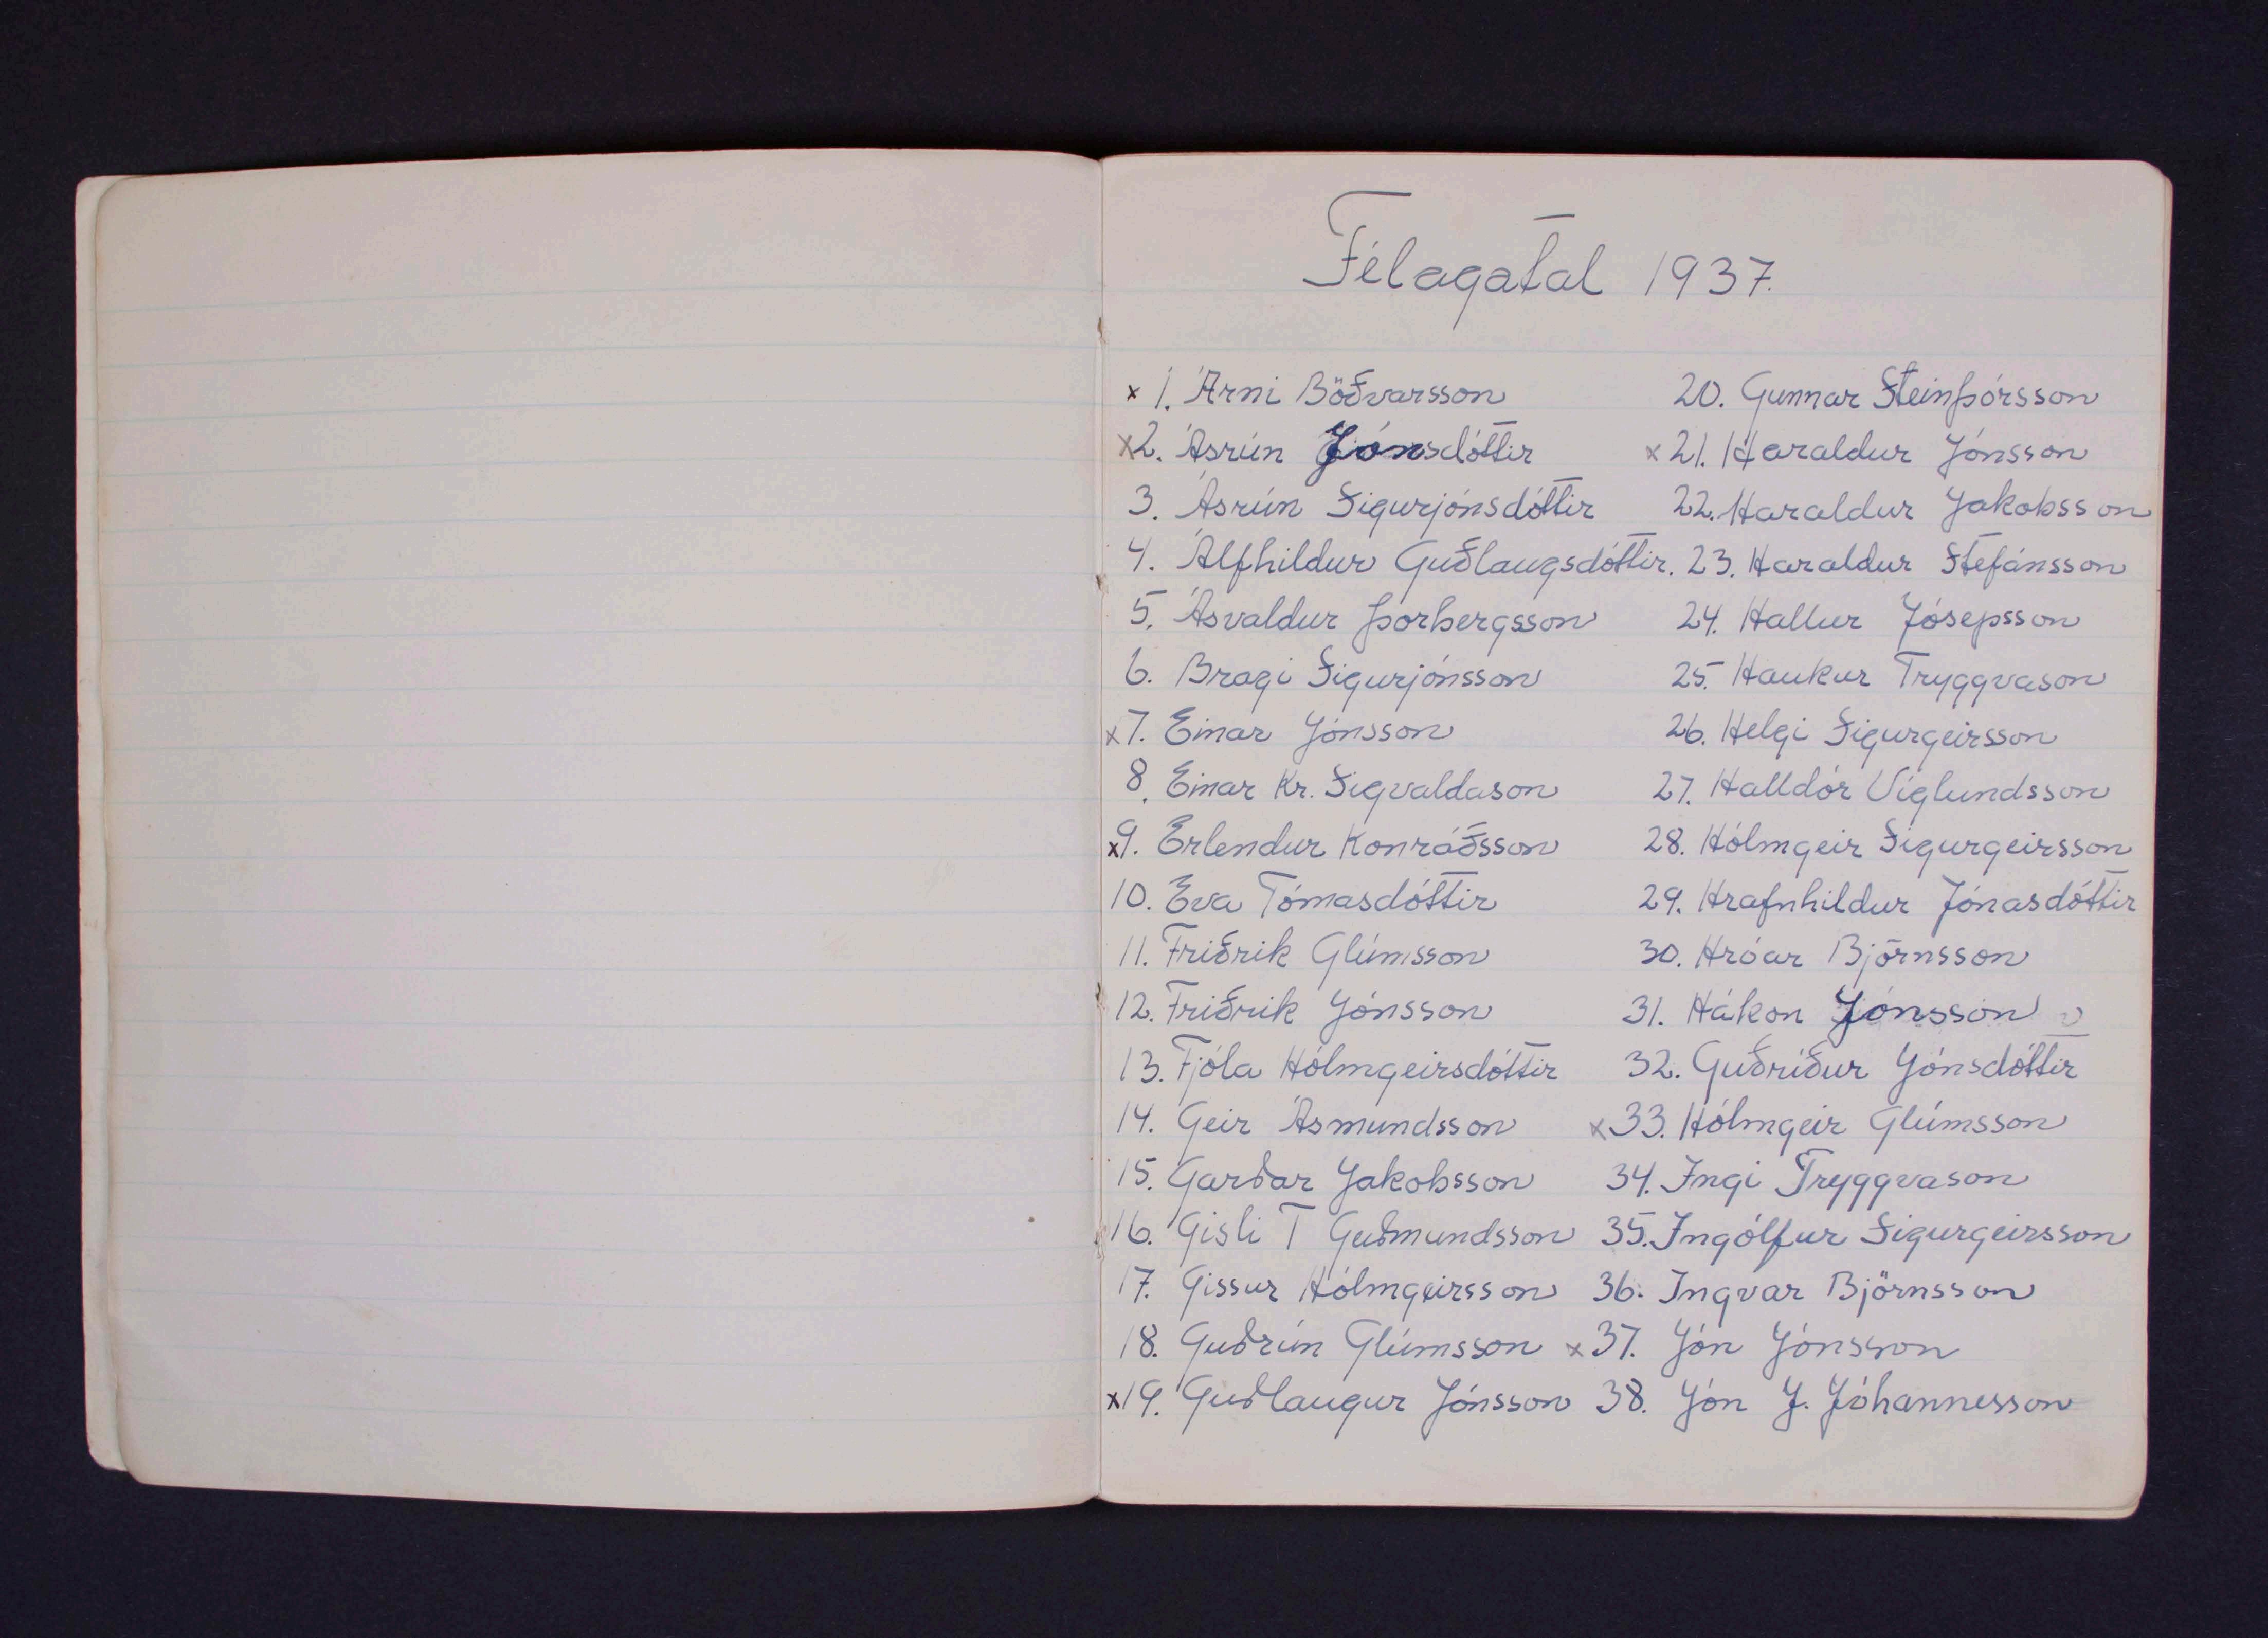 Félagatal 1937.
x 1. Árni Böðvarsson
x 2. Ásrún Jónsdóttir
3. Ásrún Sigurjónsdóttir
4. Álfhildur Guðlaugsdóttir.
5. Ásvaldur Þorbergsson
6. Bragi Sigurjónsson
x 7. Einar Jónsson
8. Einar Kr. Sigvaldason
x 9. Erlendur Konráðsson
10. Eva Tómasdóttir
11. Friðrik Glúmsson
12. Friðrik Jónsson
13. Fjóla Hólmgeirsdóttir
14. Geir Ásmundsson
15. Garðar Jakobsson
16. Gísli T Guðmundsson
17. Gissur Hólmgeirsson
18. Guðrún Glúmsson
x 19. Guðlaugur Jónsson
20. Gunnar Steinþórsson
x 21. Haraldur Jónsson
22. Haraldur Jakobsson
23. Haraldur Stefánsson
24. Hallur Jósepsson
25. Haukur Tryggvason
26. Helgi Sigurgeirsson
27. Halldór Víglundsson
28. Hólmgeir Sigurgeirsson
29. Hrafnhildur Jónasdóttir
30. Hróar Björnsson
31. Hákon Jónsson
32. Guðríður Jónsdóttir
x 33. Hólmgeir Glúmsson
34. Ingi Tryggvason
35. Ingólfur Sigurgeirsson
36. Ingvar Björnsson
x 37. Jón Jónsson
38. Jón J. Jóhannesson